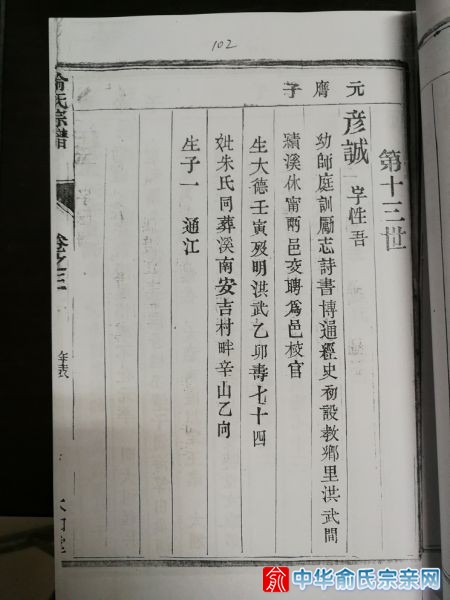 102
第十三世
元膺子
彦誠 字性吾
幼師庭訓厲志詩書博通經史初設教鄉里洪武間
績溪休甯兩邑交聘爲邑校官
生大德壬寅歿明洪武乙卯壽七十四
妣朱氏同葬溪南安吉村畔辛山乙向
生子一 通江
俞氏宗譜
卷之三
年表
俞
中华俞氏宗亲网